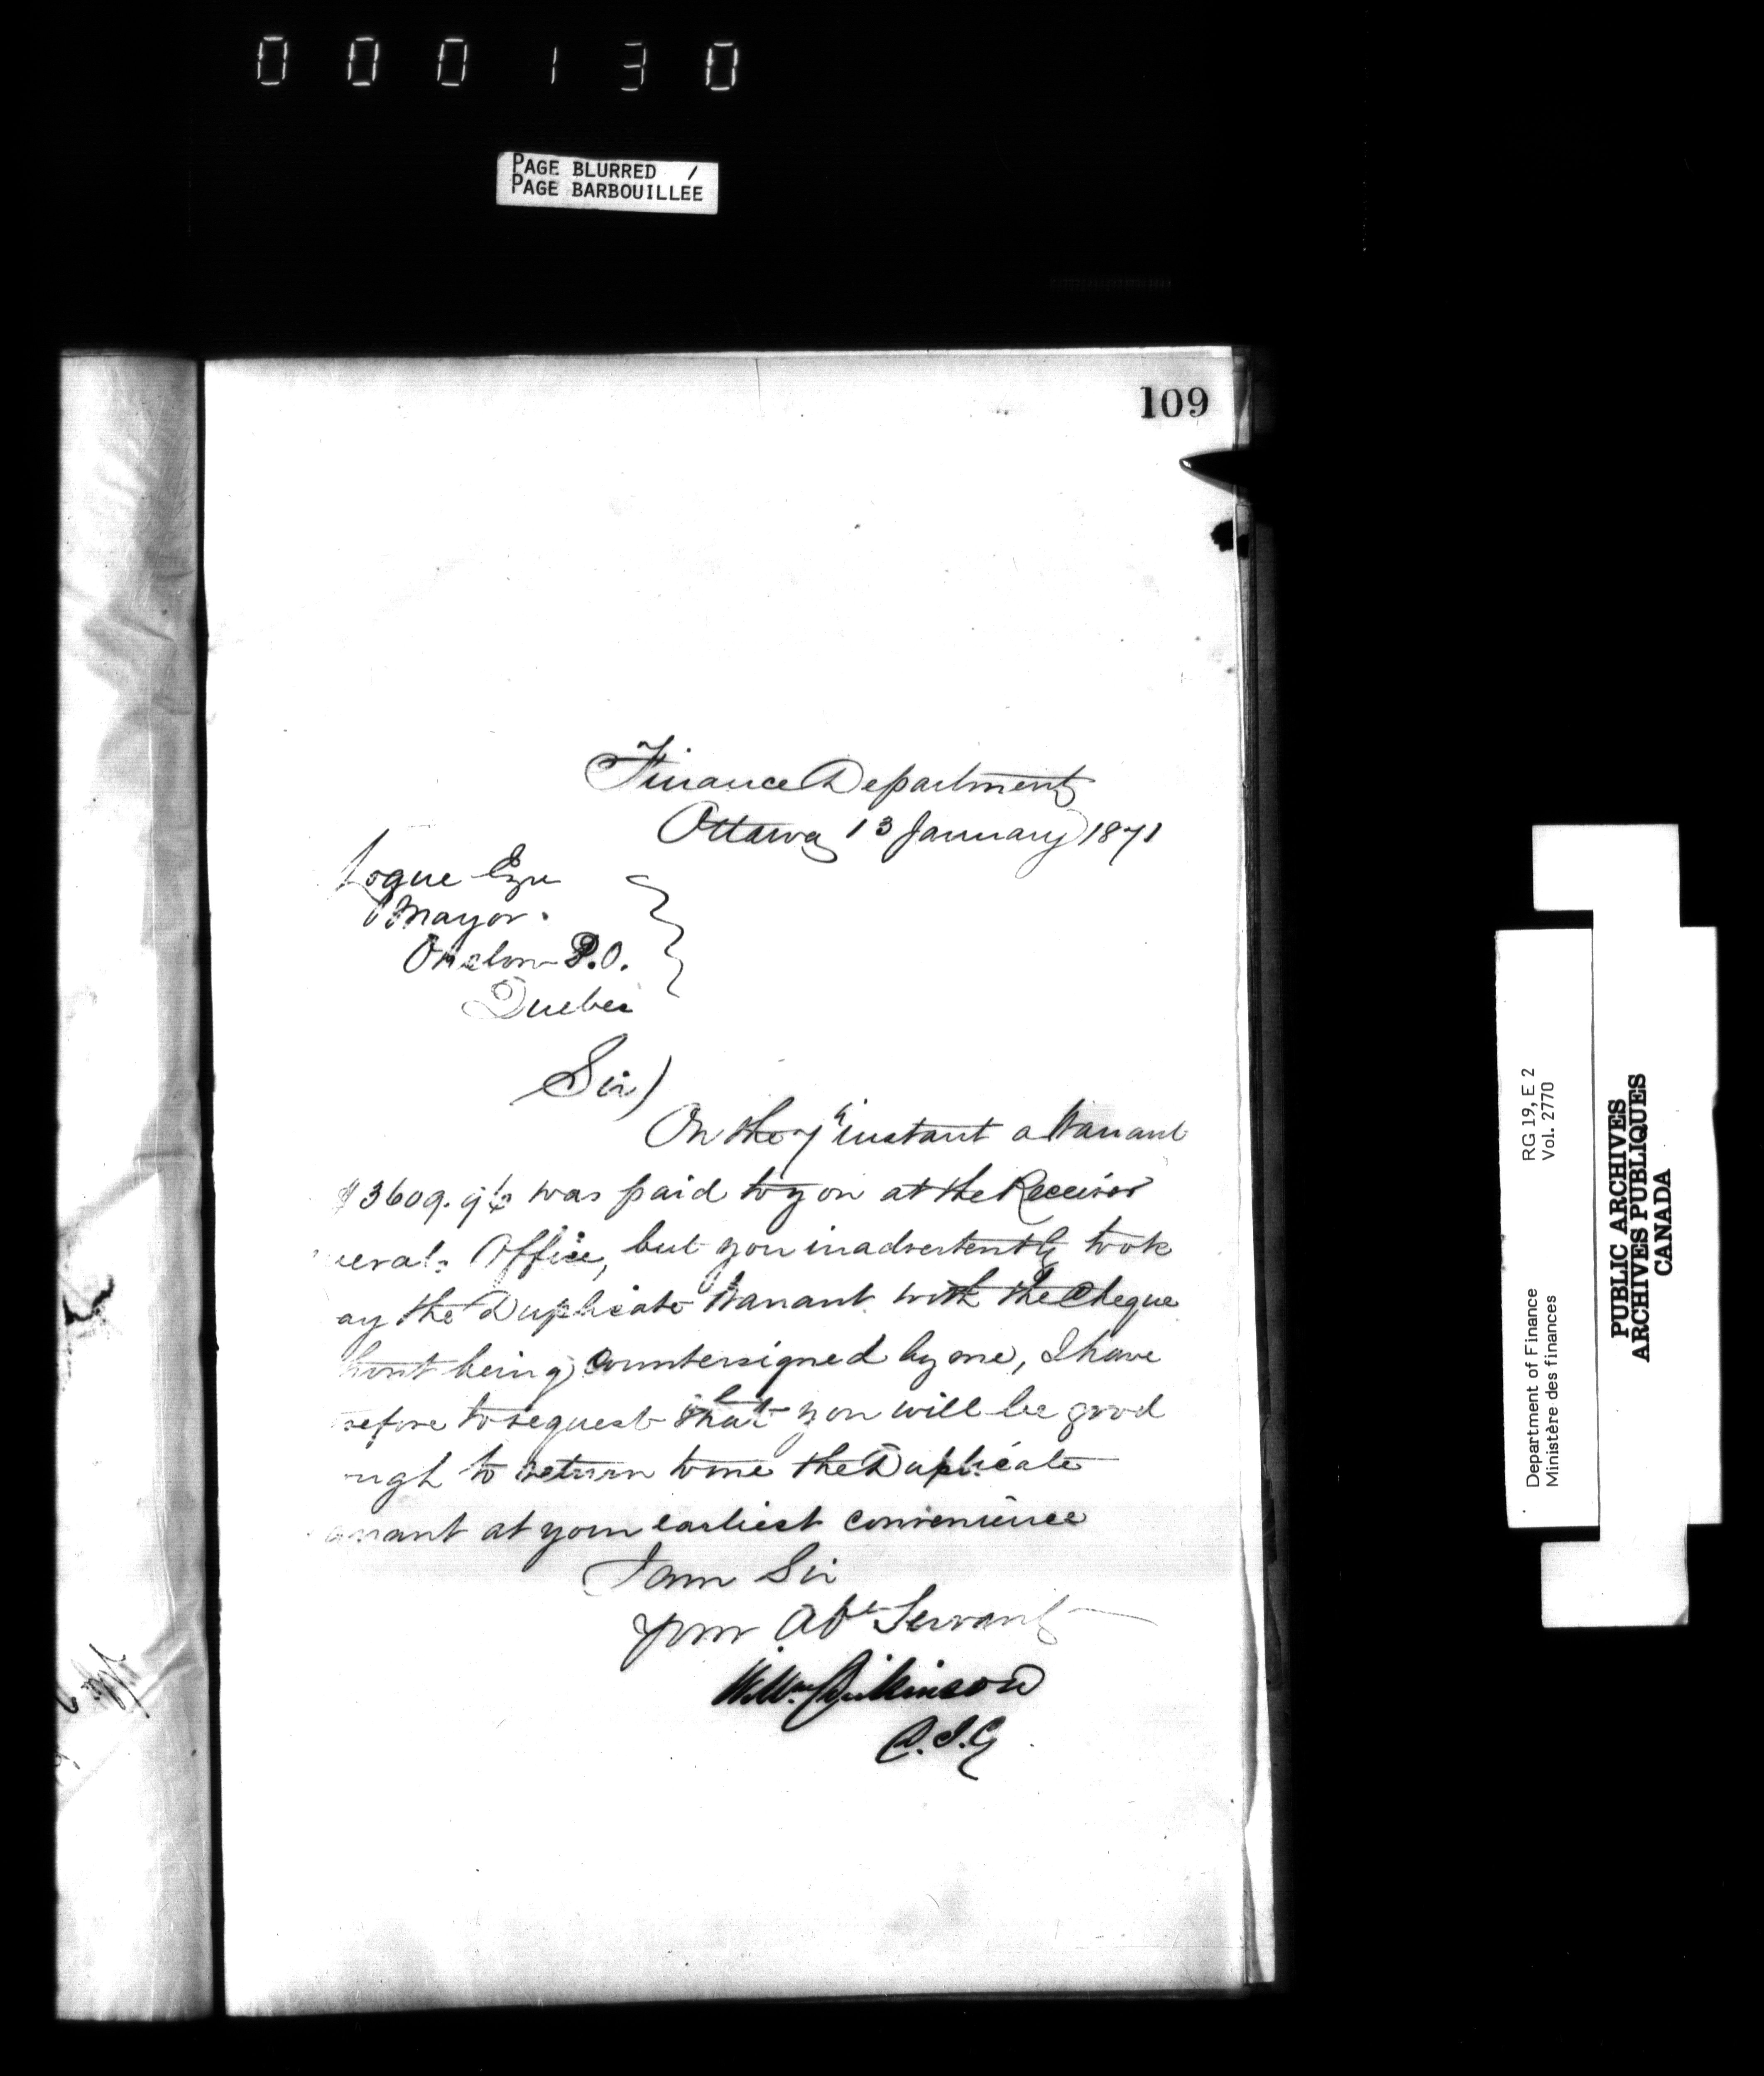 000130
PAGE BLURRED
PAGE BARBOUILLÉE
109
Finance Department
Ottawa 13 January 1871
Logue Esqre
Mayor.
Onslow P.O.
Quebec
Sir
On the 7th instant a Warrant
$3609. was paid to you at the Receiver
neral's Office, but you inadvertently took
ay the Duplicate Warrant with the Cheque
hout being countersigned by me, I have
refore to request that you will be good
ugh to return to me the Duplicate
arrant at your earliest convenience
I am Sir
your Obt Servant
Wm Dickinson
D.I.G
Department of Finance RG 19, E 2
Ministère des finances Vol. 2770
PUBLIC ARCHIVES
ARCHIVES PUBLIQUES
CANADA